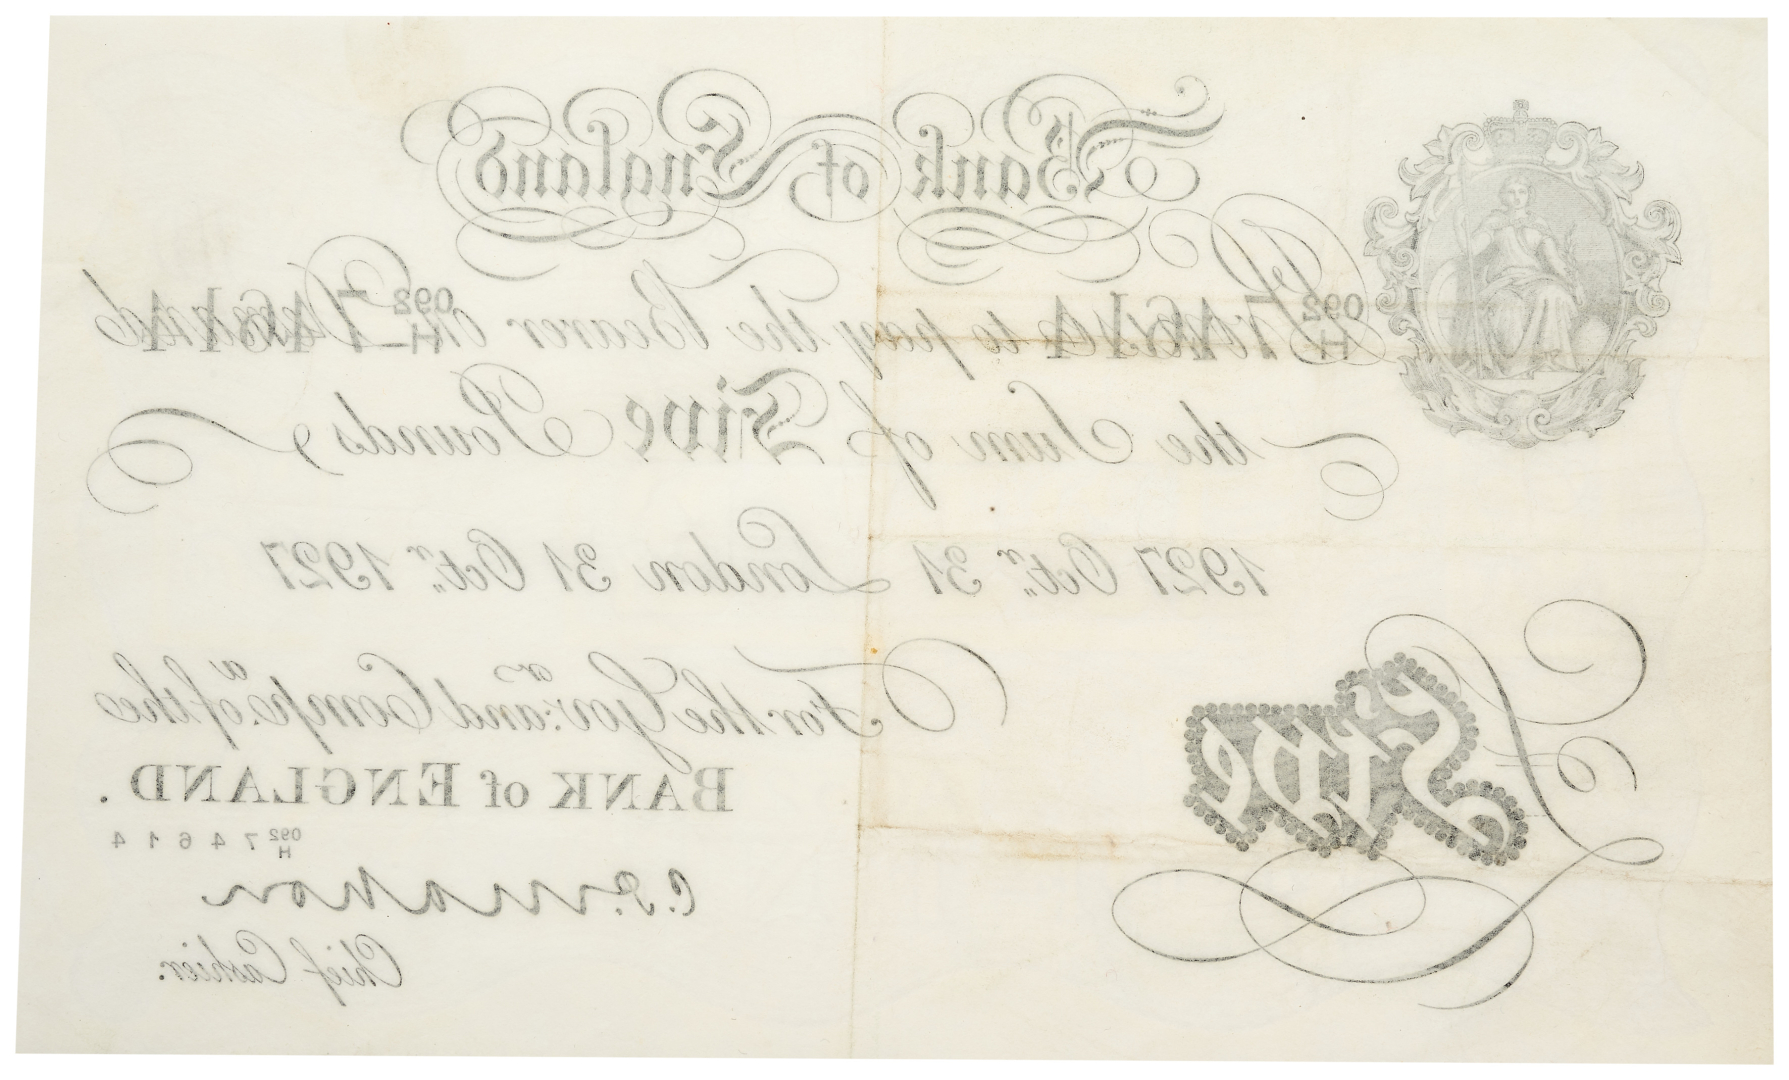 Bank of England
092/H 74614 092/H 74614
I Promise to pay the Bearer on Demand
the Sum of Five Pounds
1927 Octr. 31 London 31 Octr. 1927
For the Govr. and Compa. of the
BANK of ENGLAND.
092/H 74614
£Five
C.P. Mahon
Chief Cashier.